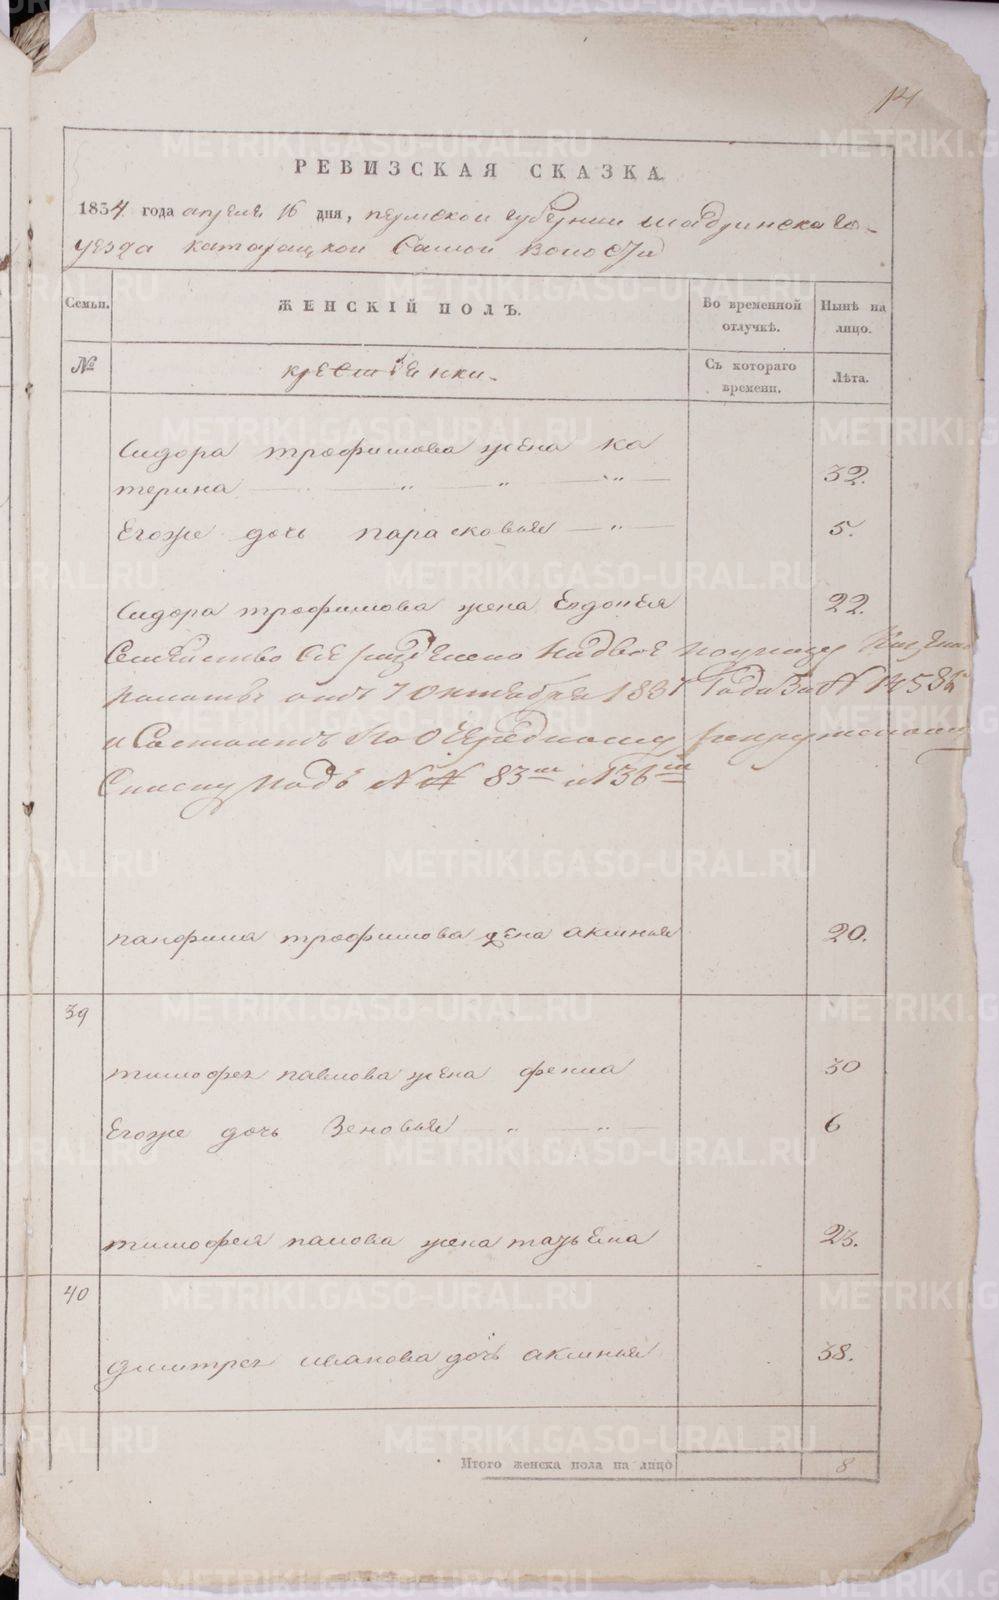 14
РЕВИЗСКАЯ СКАЗКА
1834 года апреля 16 дня, пермской губернии шадринскаго
уезда катайцкой Самой волости
Семьи.
ЖЕНСКІЙ ПОЛЪ.
Во временной отлучкѣ.
Нынѣ на лицо.
№
крестьенки.
Съ котораго времени.
Лѣта.
Сидора трофимова жена ка
терина — „ — „ — „ — 32.
Егоже дочь парасковья — „ — 5.
Сидора трофимова жена Евдокея 22.
Семейство Сие разделено Надвое
палаты отъ 7 Октября 1837 Года За №
и Состоитъ По Очередному рекрутскому
Списку Подъ №№ 83м и 136м
панфила трофимова жена аксинья 20.
39
тимофея павлова жена фекла 30
Егоже дочь Зеновья — „ — „ — 6
тимофея павлова жена татьяна 23.
40
дмитрея иванова дочь аксинья 38.
Итого женска пола на лицо 8
METRIKI.GASO-URAL.RU